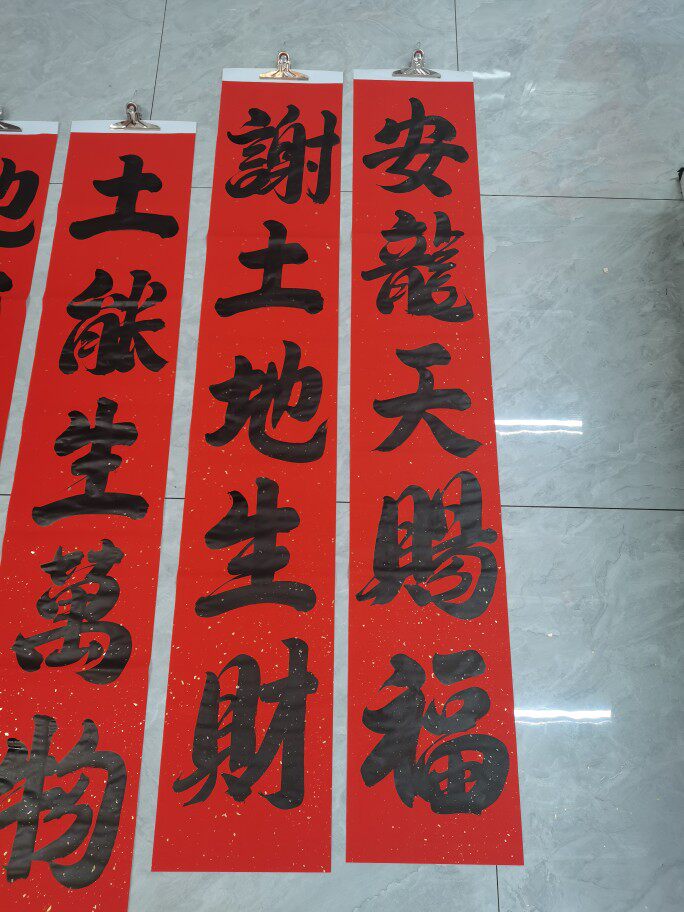 安龍天賜福
謝土地生財
土能生萬物
地